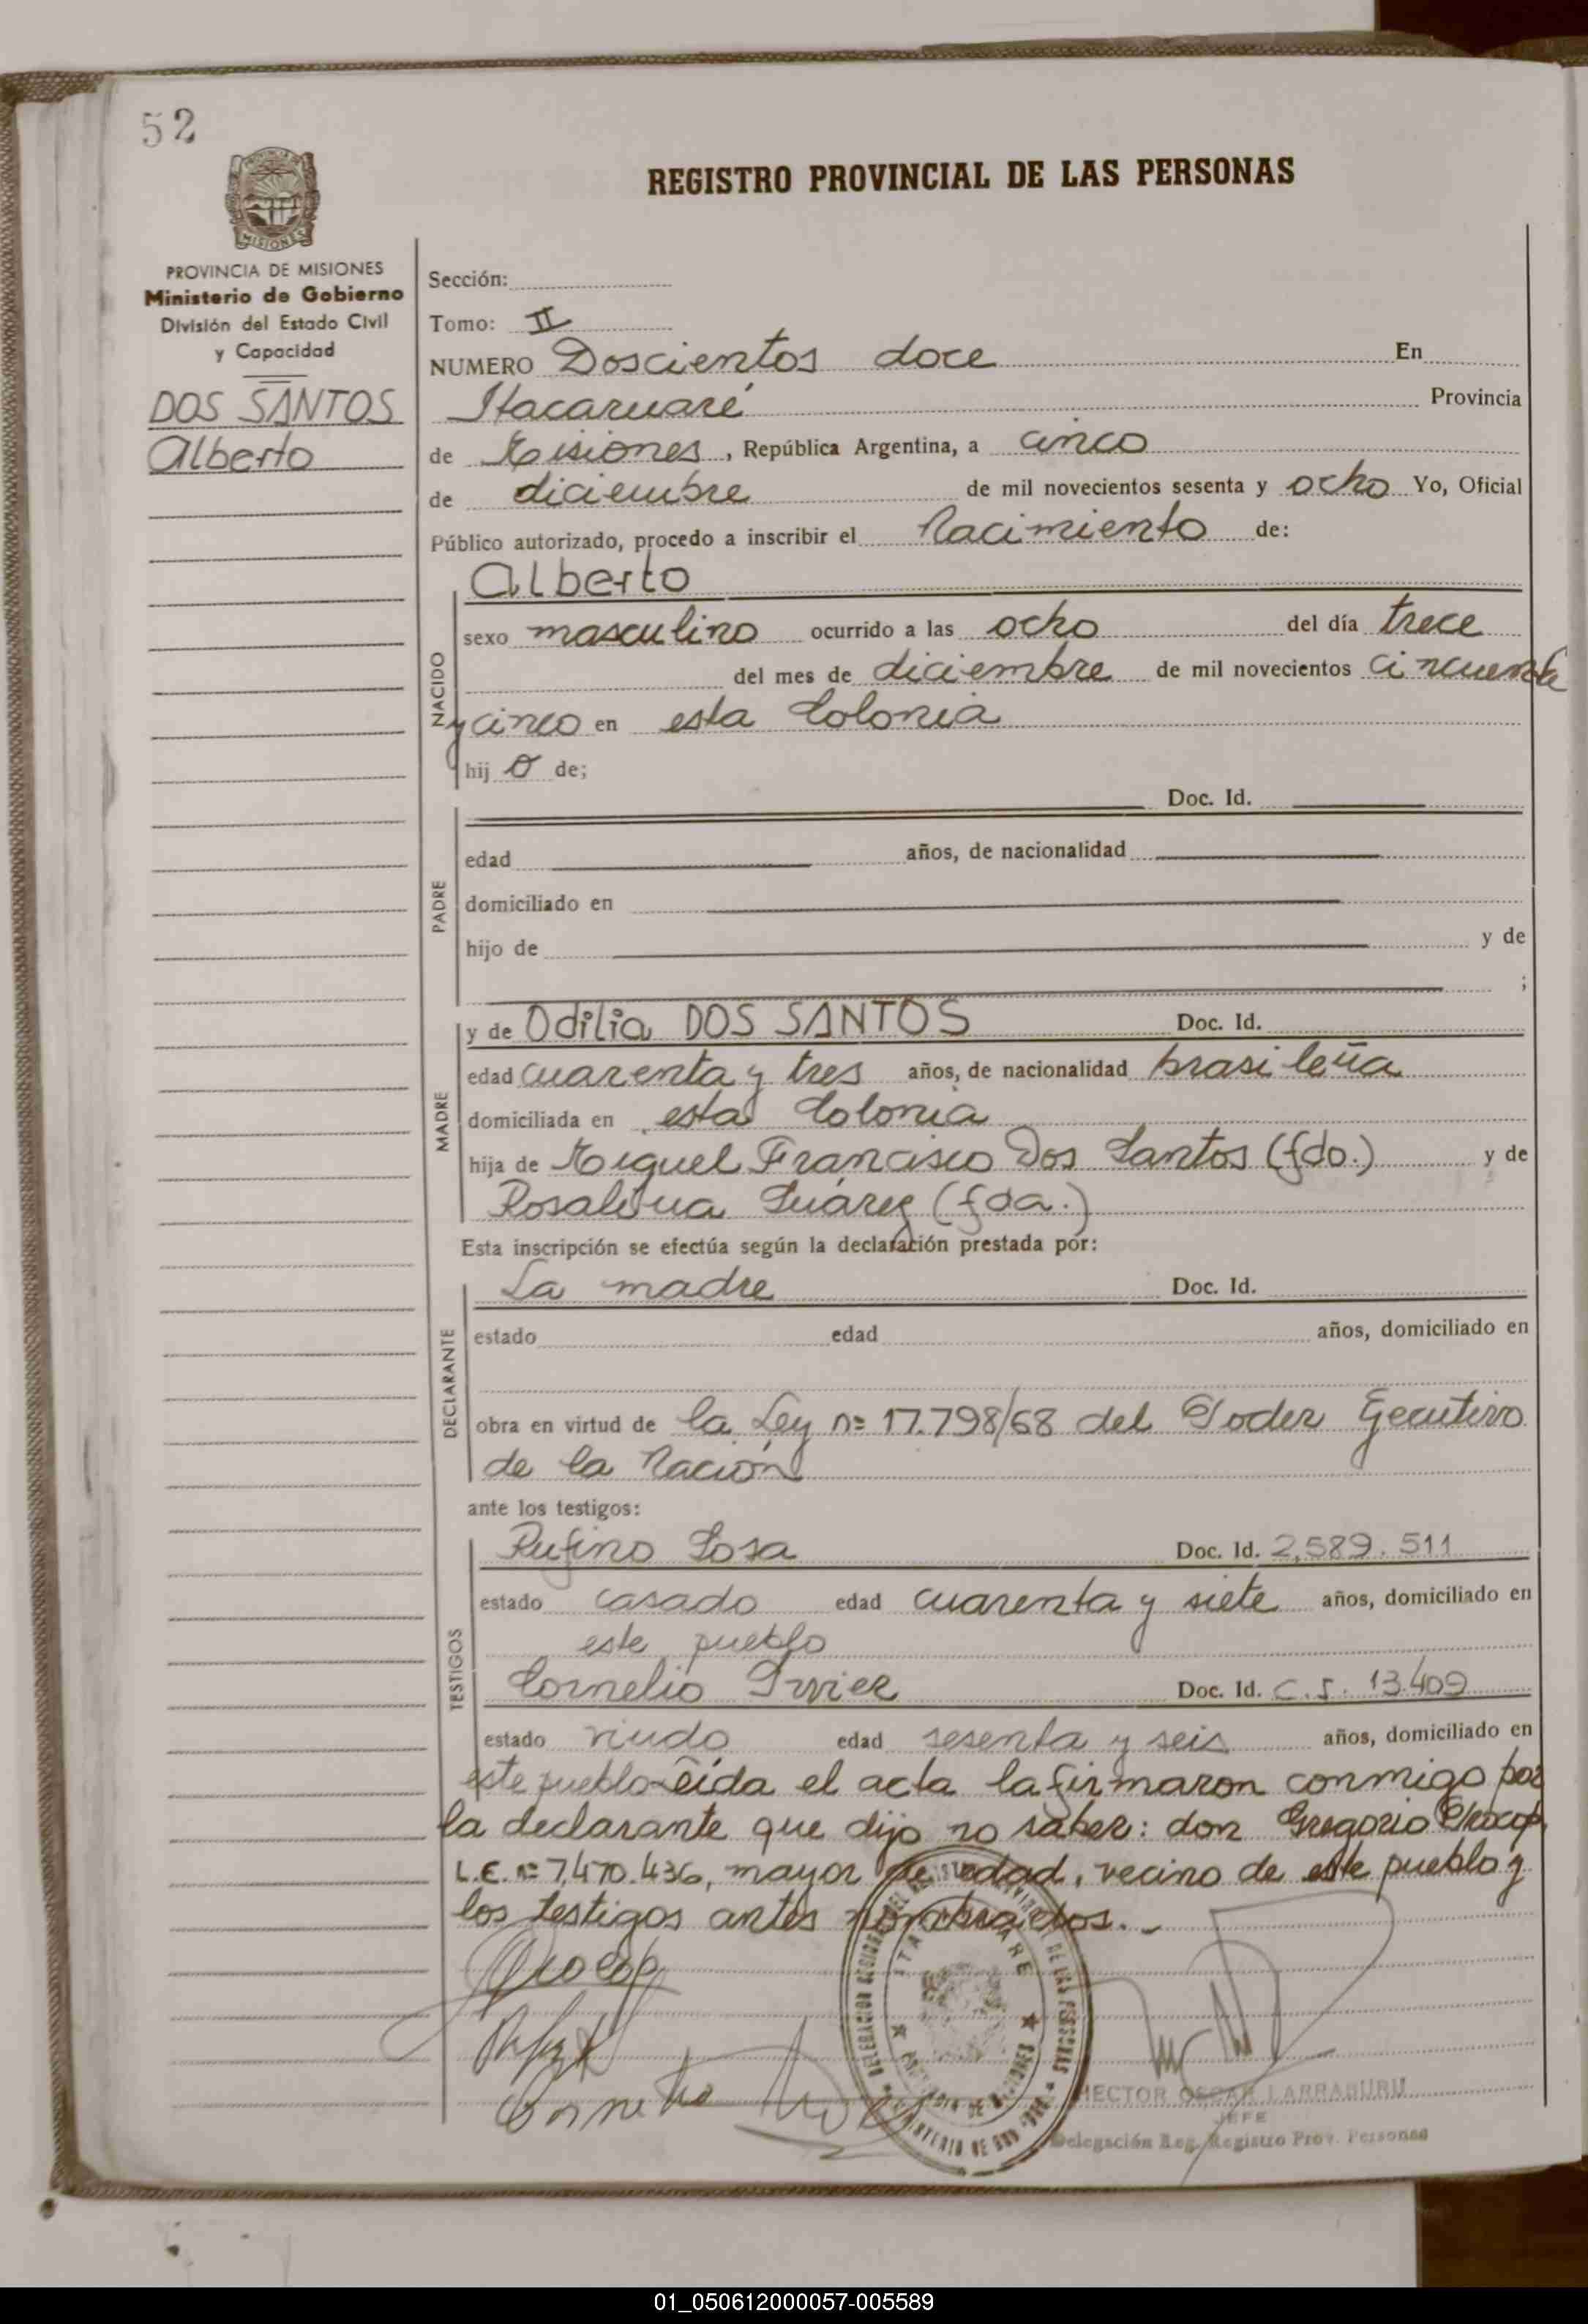 52
REGISTRO PROVINCIAL DE LAS PERSONAS
MISIONES
PROVINCIA DE MISIONES
Ministerio de Gobierno
División del Estado Civil
y Capacidad
DOS SANTOS
Alberto
Sección:
Tomo: II
NUMERO Doscientos doce En
Itacaruaré Provincia
de Misiones, República Argentina, a cinco
de diciembre de mil novecientos sesenta y ocho Yo, Oficial
Público autorizado, procedo a inscribir el Nacimiento de:
NACIDO
Alberto
sexo masculino ocurrido a las ocho del día trece
del mes de diciembre de mil novecientos cincuenta
y cinco en esta Colonia
hij o de;
PADRE
Doc. Id.
edad años, de nacionalidad
domiciliado en
hijo de y de
;
MADRE
y de Odilia DOS SANTOS Doc. Id.
edad cuarenta y tres años, de nacionalidad brasileña
domiciliada en esta Colonia
hija de Miguel Francisco Dos Santos (fdo.) y de
Suárez (fda.)
Esta inscripción se efectúa según la declaración prestada por:
DECLARANTE
La madre Doc. Id.
estado edad años, domiciliado en
obra en virtud de la Ley nº 17.798/68 del Poder Ejecutivo
de la Nación
ante los testigos:
TESTIGOS
Rufino Sosa Doc. Id. 2,589.511
estado casado edad cuarenta y siete años, domiciliado en
este pueblo
Cornelio Doc. Id. C.I. 13.409
estado viudo edad sesenta y seis años, domiciliado en
este pueblo-eída el acta la firmaron conmigo por
la declarante que dijo no saber: don Gregorio
L.E. nº 7,470.436, mayor de edad, vecino de este pueblo y
los testigos antes nombrados.-
ITACARUARE
HECTOR OSCAR LARRABURU
JEFE
Delegación Reg. Registro Prov. Personas
01_050612000057-005589